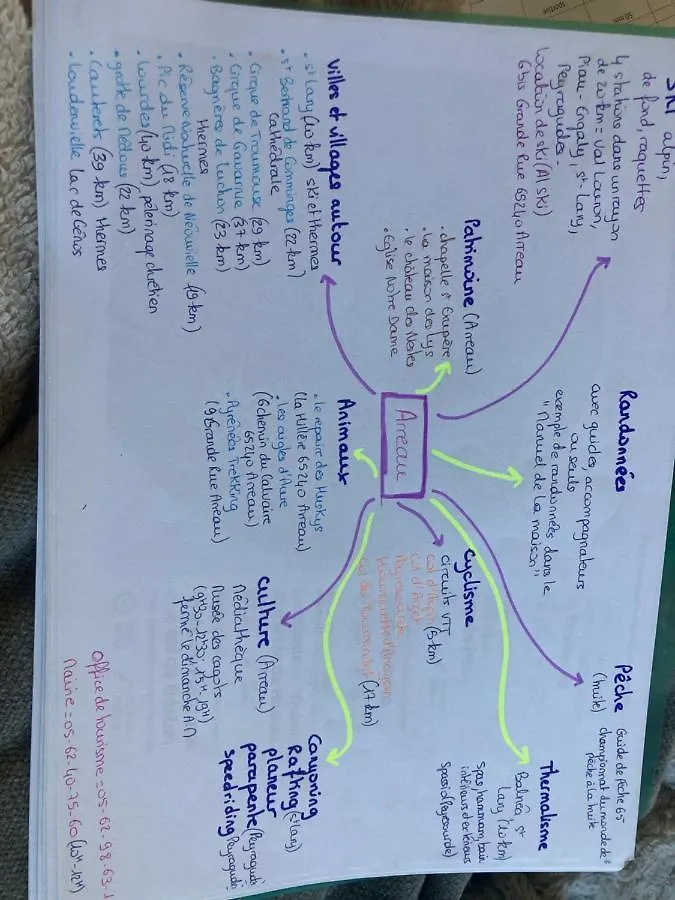 SKI alpin,
de fond, raquettes
4 stations dans un rayon
de 20 km = Val Louron,
Piau-Engaly, St-Lary,
Peyragudes.
location de ski (A! Ski)
6bis Grande Rue 65240 Arreau
Randonnées
avec guides, accompagnateurs
ou seuls
exemple de randonnées dans le
"Manuel de la maison"
Pêche
(truite)
Guide de Pêche 65
championnat du monde de
pêche à la truite
Patrimoine (Arreau)
. chapelle St Exupère
. la maison des Lys
. le château des Nestes
. Eglise Notre Dame
Arreau
Cyclisme
circuits VTT
col d'Aspin (5 km)
col d'Azet
Peyresourde
Hourquette d'Ancizan
Col du Tourmalet (17 km)
Thermalisme
Balnéa St
Lary (10 km)
spas, hammam, bain
intérieurs et extérieurs
(Peyresourde)
Villes et villages autour
. St Lary (10 km) ski et thermes
. St Bertrand de Comminges (22 km)
cathédrale
. Cirque de Troumouse (29 km)
. Cirque de Gavarnie (37 km)
. Bagnères de Luchon (23 km)
thermes
. Réserve Naturelle de Néouvielle (19 km)
. Pic du Midi (18 km)
. Lourdes (40 km) pèlerinage chrétien
. grotte de Médous (22 km)
. Cauterets (39 km) thermes
. Loudenvielle Lac de Génos
Animaux
. le repaire des Huskys
(la Hillère 65240 Arreau)
. Les aigles d'Aure
(6 chemin du Calvaire
65240 Arreau)
. Pyrénées Trekking
(9 Grande Rue Arreau)
Culture (Arreau)
Médiathèque
Musée des cagots
(9h30-12h30; 15h-19h)
fermé le dimanche AM
Canyoning
Rafting (St Lary)
planeur
parapente (Peyragudes
speedriding Peyragudes
Office de tourisme = 05-62-98-63-1
Mairie = 05-62-40-75-60 (10h-12h)